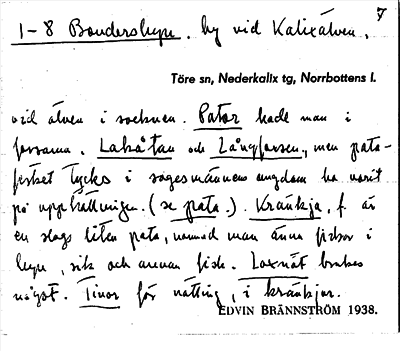 7
1-8 Bondersbyn. by vid Kalixälven,
Töre sn, Nederkalix tg, Norrbottens l.
vid älven i socknen. Pator hade man i
forsarna. Lakåtan och Långforsen, men pata-
fisket tycks i sagesmannens ungdom ha varit
på upphällningen. (se pata.). Kränkja, f. är
en slags liten pata, varmed man ännu fiskar i
byn, sik och annan fisk. Laxnät brukas
något. Tinor för natting, i kränkjor.
EDVIN BRÄNNSTRÖM 1938.